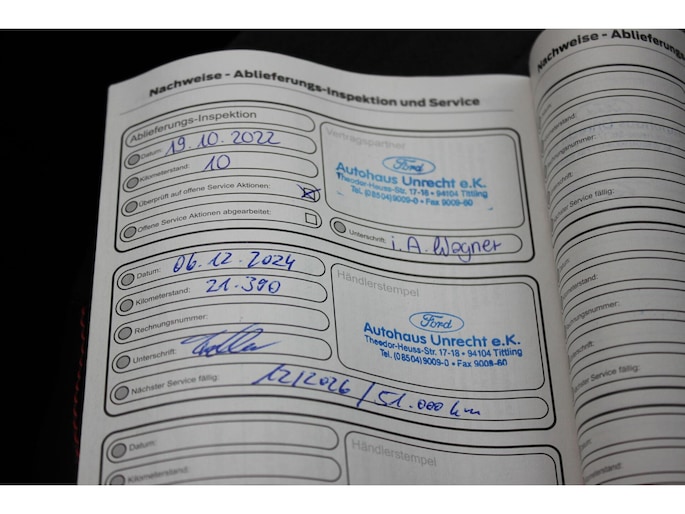 Nachweise - Ablieferungs-Inspektion und Service
Ablieferungs-Inspektion
Datum: 19.10.2022
Kilometerstand: 10
Überprüft auf offene Service Aktionen:
Offene Service Aktionen abgearbeitet:
Vertragspartner
Ford
Autohaus Unrecht e.K.
Theodor-Heuss-Str. 17-18 • 94104 Tittling
Tel. (08504) 9009-0 • Fax 9009-60
Unterschrift: i.A. Wagner
Datum: 06.12.2024
Kilometerstand: 21.390
Rechnungsnummer:
Unterschrift:
Nächster Service fällig: 12/2026 / 51.000 km
Händlerstempel
Ford
Autohaus Unrecht e.K.
Theodor-Heuss-Str. 17-18 • 94104 Tittling
Tel. (08504) 9009-0 • Fax 9009-60
Datum:
Kilometerstand:
Händlerstempel
Nachweise - Ablieferungs